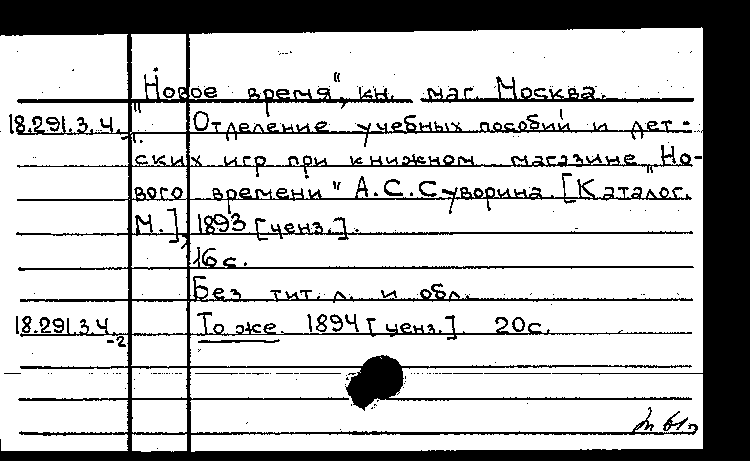 "Новое время", кн. маг. Москва.
18.291.3.4.-1. Отделение учебных пособий и дет-
ских игр при книжном магазине "Но-
вого времени" А.С.Суворина. [Каталог.
М.], 1893 [ценз.].
16 с.
Без тит. л. и обл.
18.291.3.4.-2 То же. 1894 [ценз.]. 20 с.